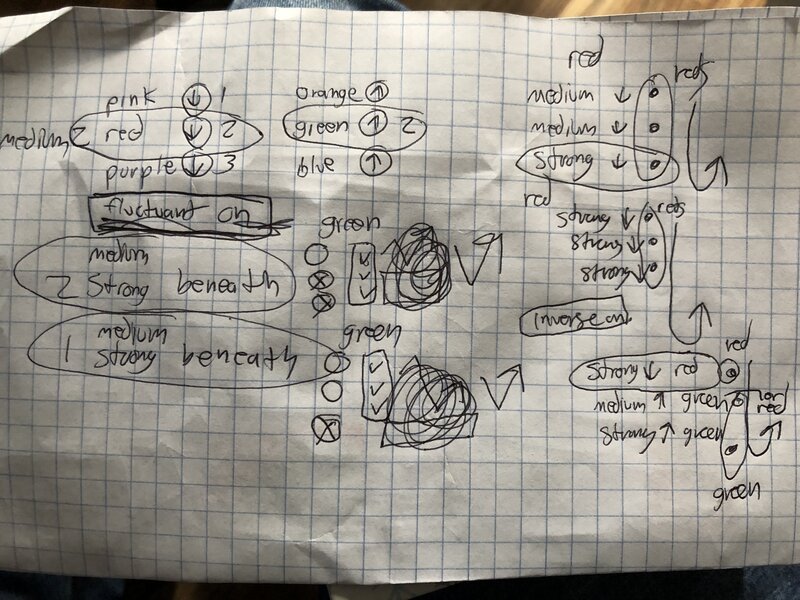 pink ↓ 1
medium 2 red ↓ 2
purple ↓ 3
orange ↑
green ↑ 2
blue ↑
fluctuant on
medium
2 strong beneath
green
medium
1 strong beneath
green
red
reds
medium ↓
medium ↓
strong ↓
red
reds
strong ↓
strong ↓
strong ↓
inverse on
red
strong ↓ red
medium ↑ green
non
red
strong ↑ green
green